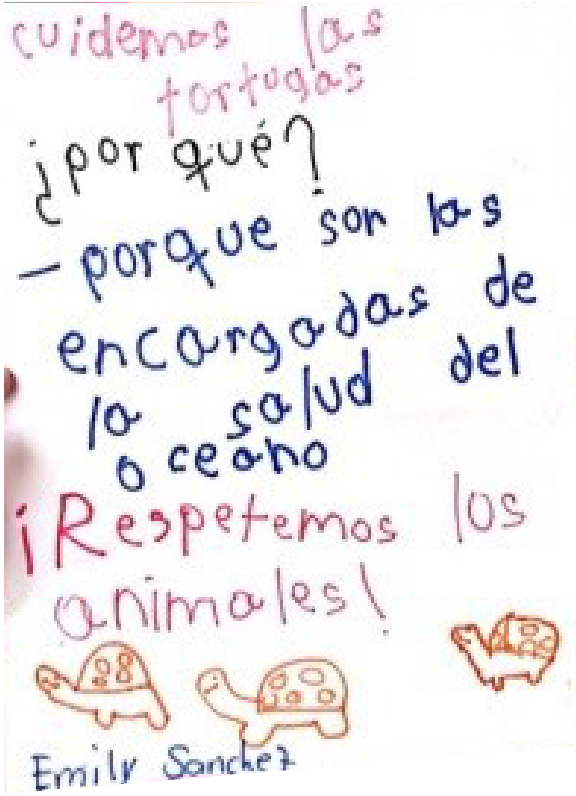 cuidemos las
tortugas
¿por qué?
- porque son las
encargadas de
la salud del
oceano
¡Respetemos los
animales!
Emily Sanchez